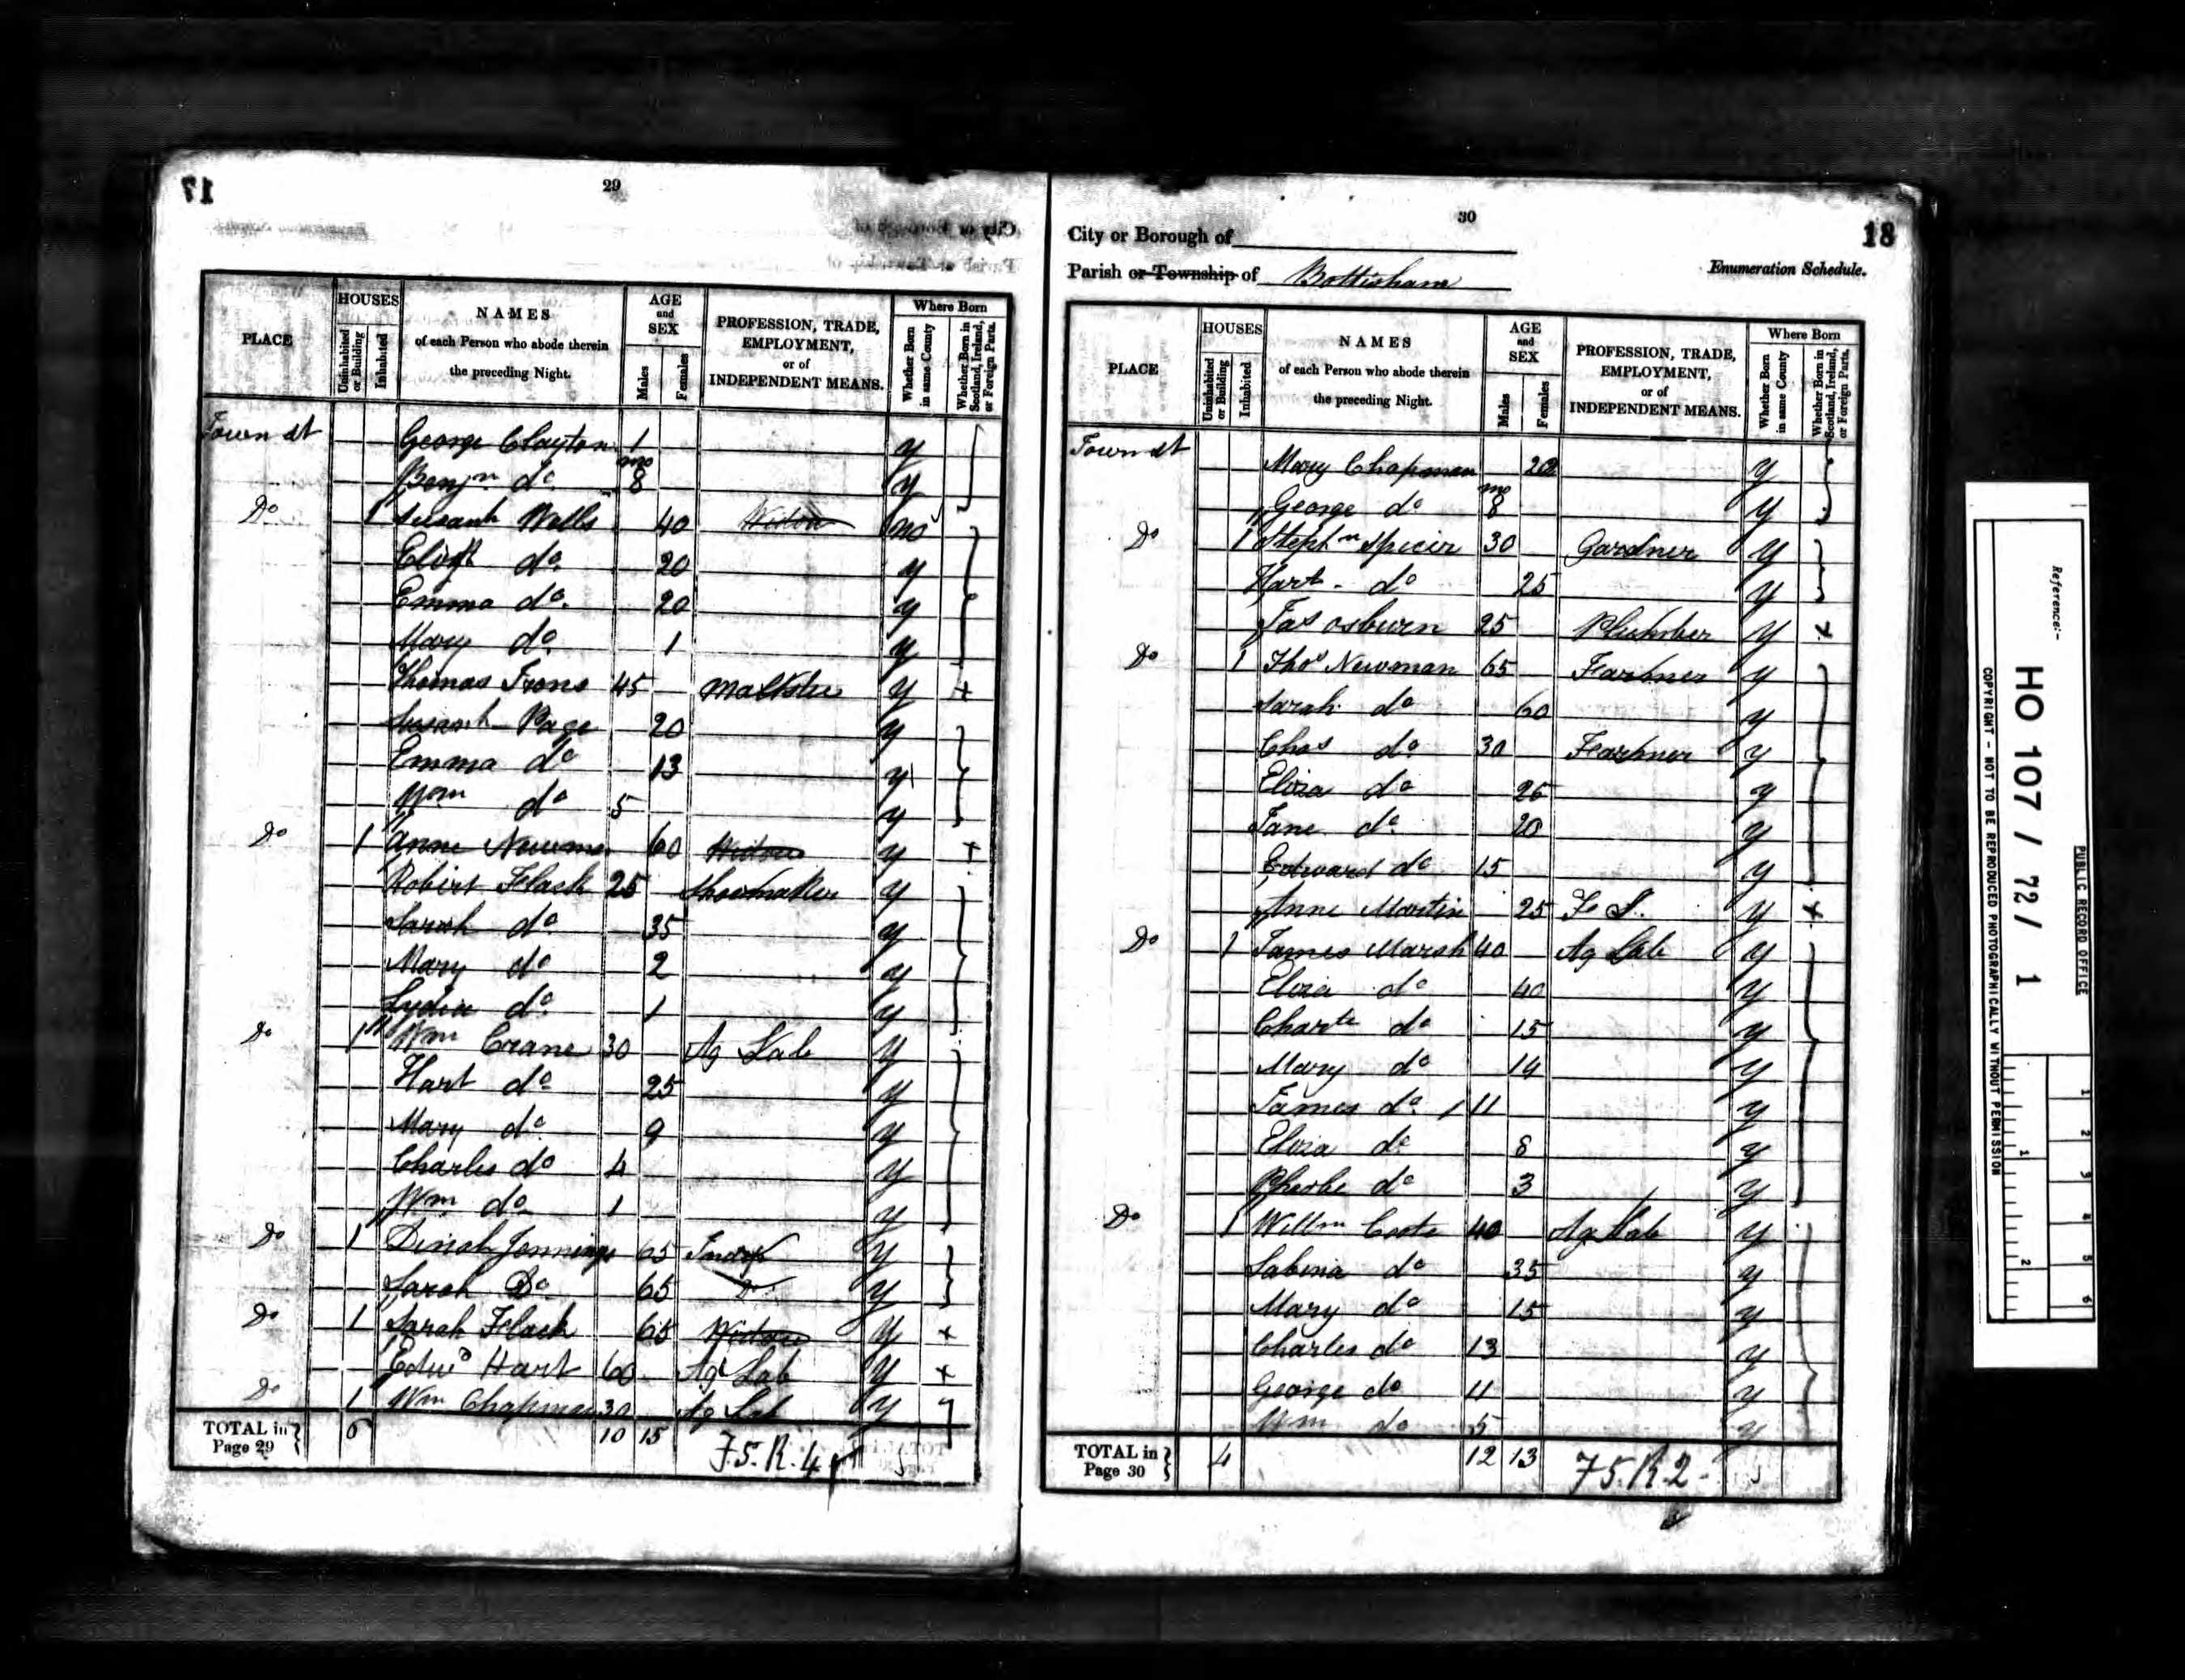 17
29
City or Borough of
PLACE
HOUSES
Uninhabited or Building
Inhabited
NAMES
of each Person who abode therein
the preceding Night.
AGE
and
SEX
Males
Females
PROFESSION, TRADE,
EMPLOYMENT,
or of
INDEPENDENT MEANS.
Where Born
Whether Born in same County
Whether Born in Scotland, Ireland, or Foreign Parts.
Town st George Clayton 1 y
Benjn do mo 8 y
Do 1 Susanh Wells 40 Widow no
Elizth do 20 y
Emma do 20 y
Mary do 1 y
Thomas Irons 45 Maltster y +
Susanh Page 20 y
Emma do 13 y
Wm do 5 y
Do 1 Anne Newman 60 Widow y +
Robert Flack 25 Shoemaker y
Sarah do 35 y
Mary do 2 y
Lydia do 1 y
Do 1 Wm Crane 30 Ag Lab y
Hart do 25 y
Mary do 9 y
Charles do 4 y
Wm do 1 y
Do 1 Dinah Jennings 65 Indep y
Sarah Do 65 Do y
Do 1 Sarah Flack 65 Widow y +
Edwd Hart 60 Ag Lab y +
Do 1 Wm Chapman 30 Ag Lab y
TOTAL in Page 29 } 6 10 15
7.5.R.4
30
18
City or Borough of
Parish or Township of Bottisham
Enumeration Schedule.
PLACE
HOUSES
Uninhabited or Building
Inhabited
NAMES
of each Person who abode therein
the preceding Night.
AGE
and
SEX
Males
Females
PROFESSION, TRADE,
EMPLOYMENT,
or of
INDEPENDENT MEANS.
Where Born
Whether Born in same County
Whether Born in Scotland, Ireland, or Foreign Parts.
Town st Mary Chapman 20 y
George do mo 8 y
Do 1 Stephn Spicer 30 Gardner y
Hart do 25 y
Jas Osburn 25 Plumber y +
Do 1 Thos Newman 65 Farmer y
Sarah do 60 y
Chas do 30 Farmer y
Eliza do 26 y
Jane do 20 y
Edward do 15 y
Anne Martin 25 F S. y +
Do 1 James Marsh 40 Ag Lab y
Eliza do 40 y
Charte do 15 y
Mary do 14 y
James do 11 y
Eliza do 8 y
Phoebe do 3 y
Do 1 Willm Coote 40 Ag Lab y
Sabina do 35 y
Mary do 15 y
Charles do 13 y
George do 11 y
Wm do 5 y
TOTAL in Page 30 } 4 12 13
7.5.R.2-
PUBLIC RECORD OFFICE
Reference:-
HO 107 / 72 / 1
COPYRIGHT - NOT TO BE REPRODUCED PHOTOGRAPHICALLY WITHOUT PERMISSION
1 2 3 4 5 6
1 2